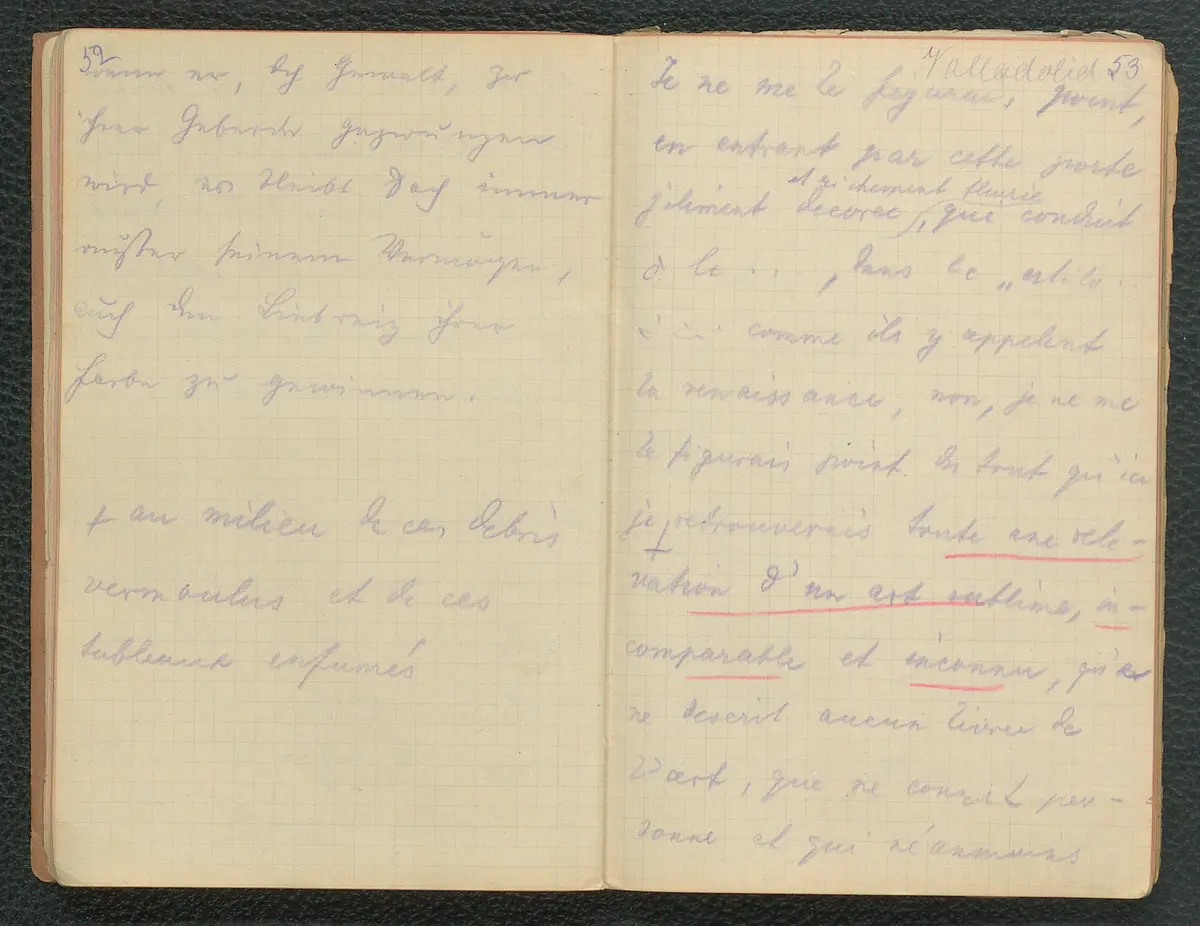 52
wenn er, des Gewalt, zu
ihrer Geberde gezwungen
wird, es bleibt doch immer
außer seinem Vermögen,
auch den Liebreiz ihrer
Farbe zu gewinnen.
+ au milieu de ces debris
vermoulus et de ces
tableaux enfumés
Valladolid 53
Je ne me le figurai, point,
en entrant par cette porte
et richement fleurie
joliment decoree, qui conduit
à la ...., dans le „estilo ...
... comme ils y appelent
la renaissance, non, je ne me
le figurais point du tout qu'ici
je retrouverais toute une reve-
+
lation d'un art sublime, in-
comparable et inconnu, qu'en
ne descrit aucun livre de
l'art, que ne connait per-
sonne et qui néanmoins